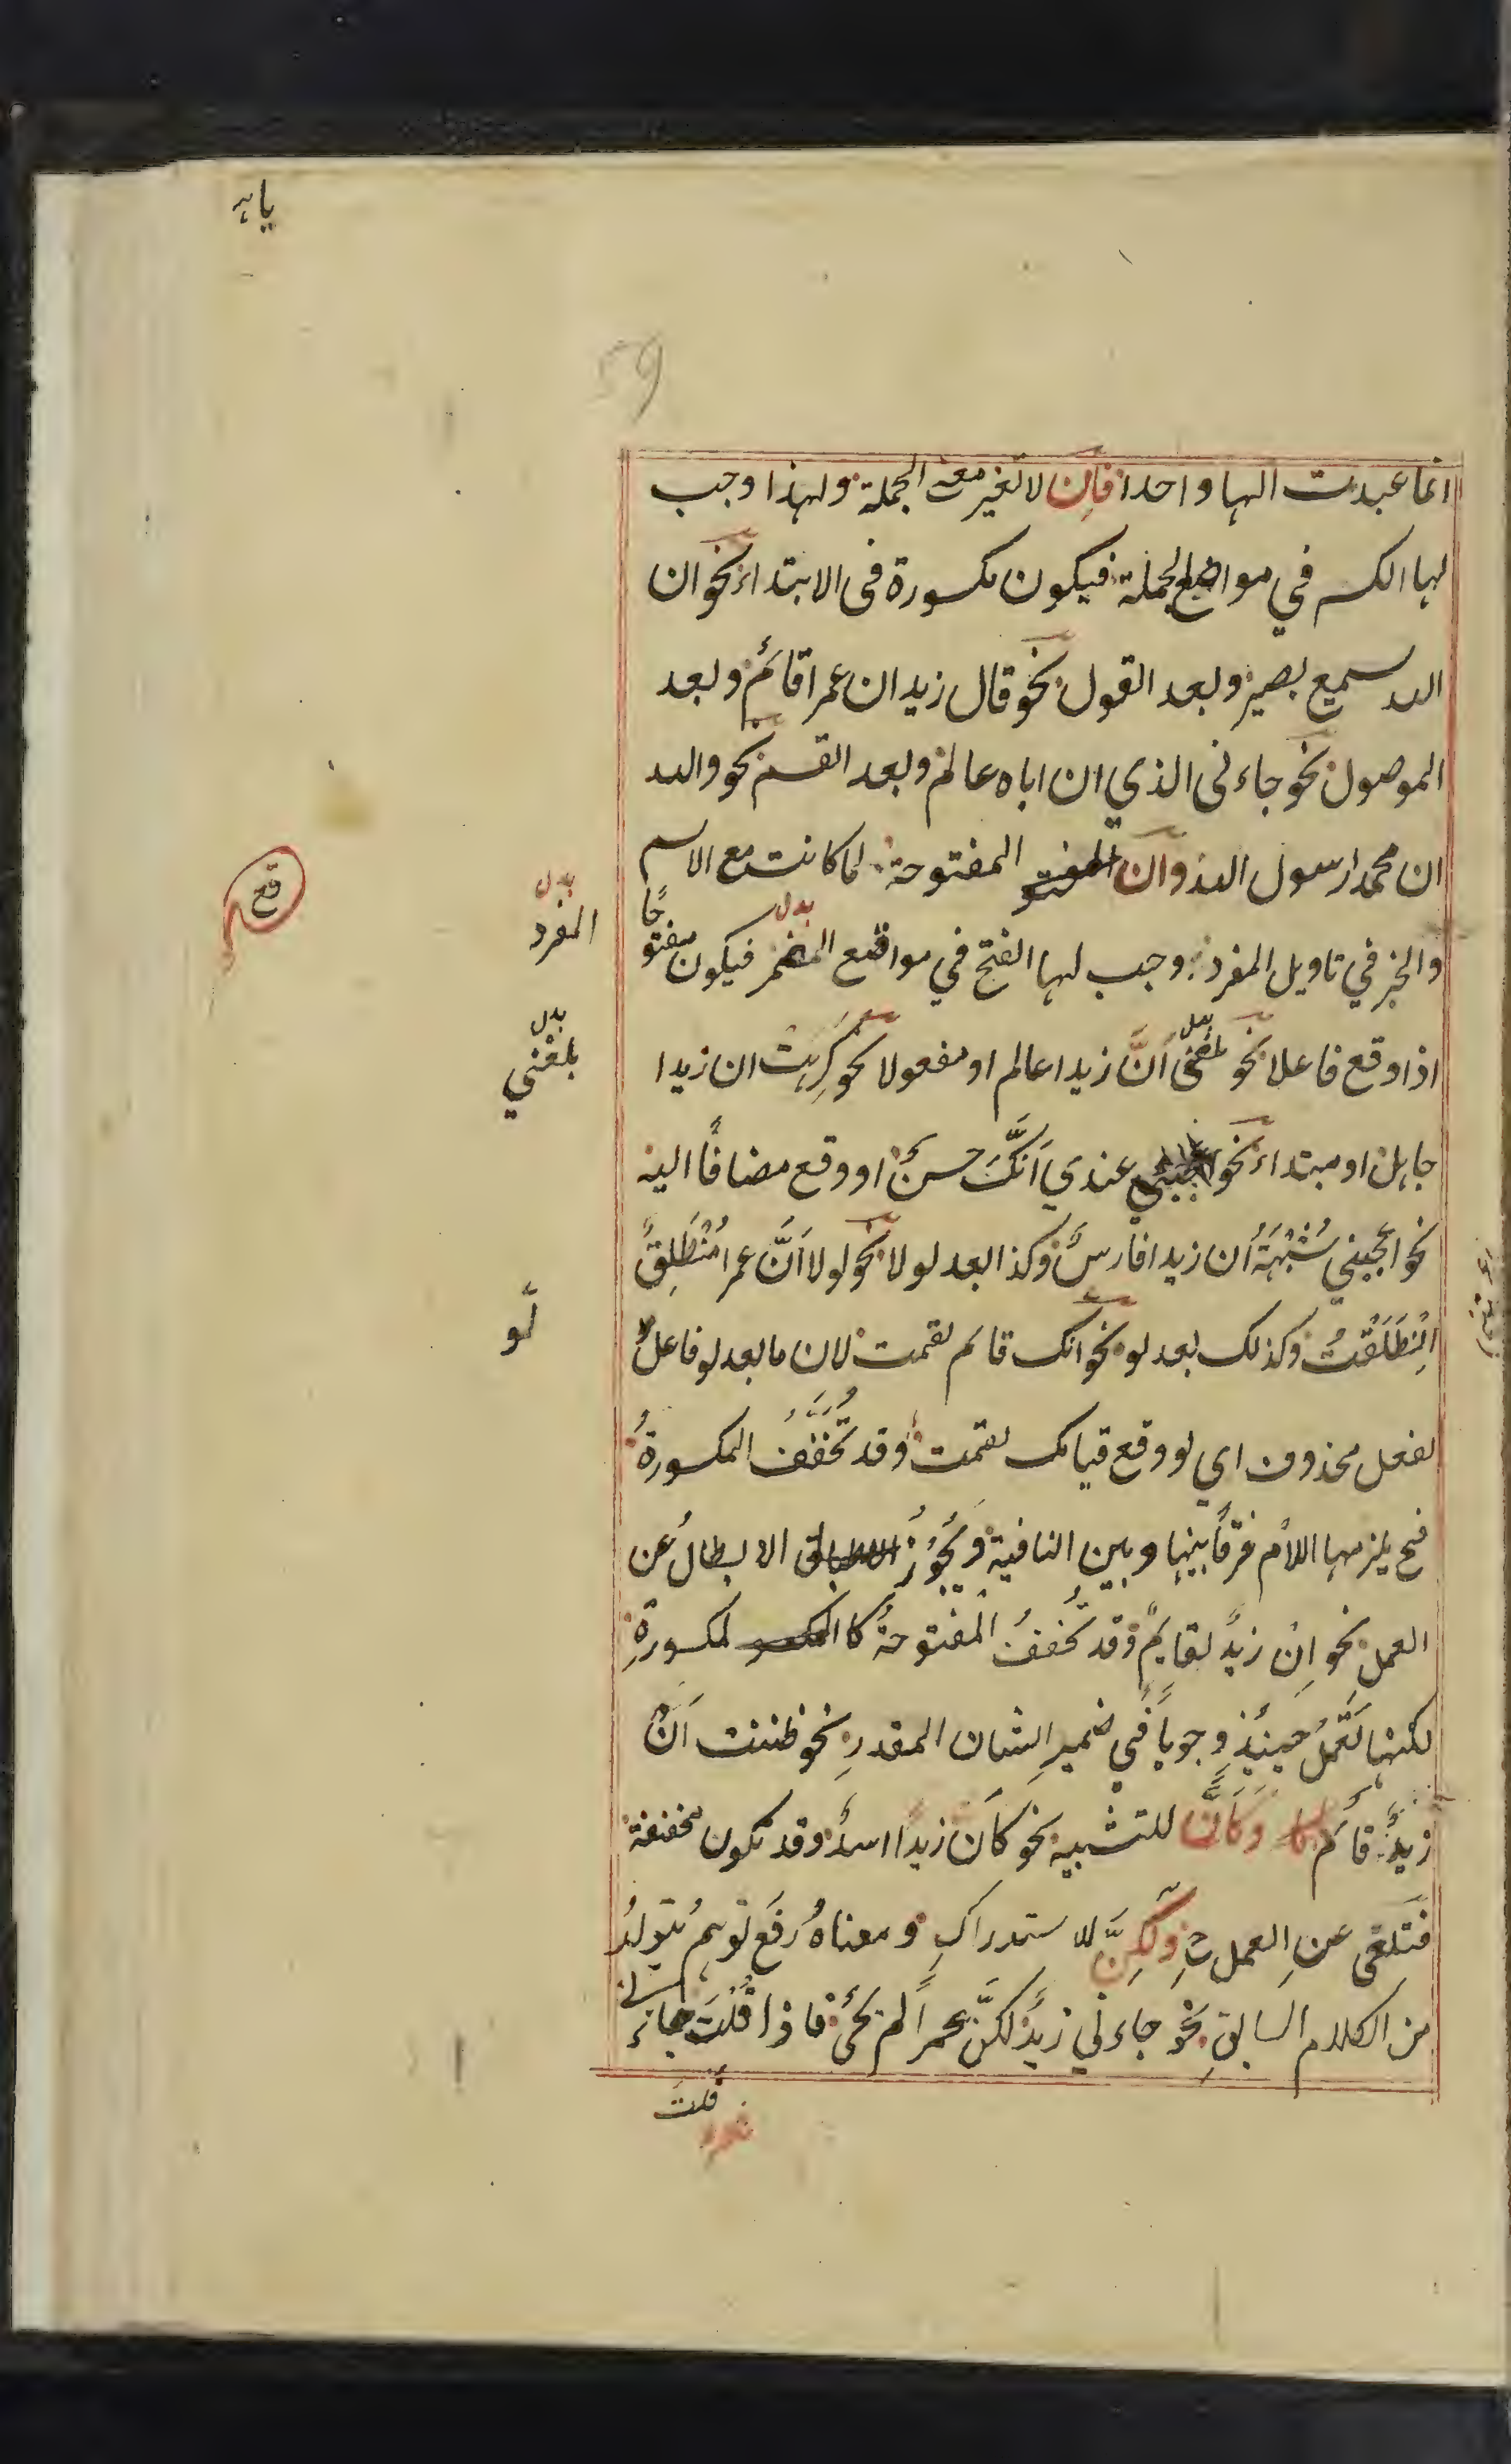 یاہ
59
انما عبدت الہا واحدا فاِن لا تغیر معنے الجملة ولہذا وجب
لہا الکسر في مواضع الجملة فیکون مکسورة فی الابتداء نحو ان
اللہ سمیع بصیر وبعد القول نحو قال زید ان عمرا قائم وبعد
الموصول نحو جاءنی الذي ان اباہ عالم وبعد القسم نحو واللہ
ان محمدا رسول اللہ وان المفتو المفتوحة لما کانت مع الاسم
والخبر في تاویل المفرد وجب لہا الفتح في مواقع المضمر فیکون مفتوحًا
بدل
بدل
المفرد
قع
اذا وقع فاعلا نحو بلغنی اَنَّ زیدا عالم او مفعولا نحو کرِہتُ ان زیدا
بدل
بدل
بلغني
جاہل او مبتداء نحو عندي اَنَّکَ حسنٌ او وقع مضافًا الیہ
نحو اعجبني شُبْہَةُ اَن زیدا فارسٌ وکذا بعد لولا نحو لولا اَنَّ عمرا مُنْطَلِقٌ
اِنْطَلَقْتُ وکذلک بعد لو نحو انک قائم لقمت لان ما بعد لو فاعلٌ
لو
لفعل محذوف اي لو وقع قیامک لقمت وقد تُخَفَّفُ المکسورةُ
فح یلزمہا اللام فرقًا بینہا وبین النافیة وَیَجُوزُ الابطالُ عن
العمل نحو اِنْ زیدٌ لقایمٌ وقد تُخففُ المفتوحةُ کالمکسو لمکسورةِ
لکنہا تَعْمَلُ حینئِذٍ وجوبًا في ضمیرِ الشان المقدرِ نحو ظننت اَنْ
زیدٌ قائم کا وَکَاَنَّ للتشبیہ نحو کاَن زیدًا اسدٌ وقد تکون مخففة
فتلغی عنِ العمل وَلٰکِنَّ للاستدراکِ ومعناہُ رفَع توہمٍ یتولدُ
من الکلام السابقِ نحو جاءني زیدٌ لکنَّ عمرًا لم یجئ فاذا قُلْتَ جاءنی
قلت